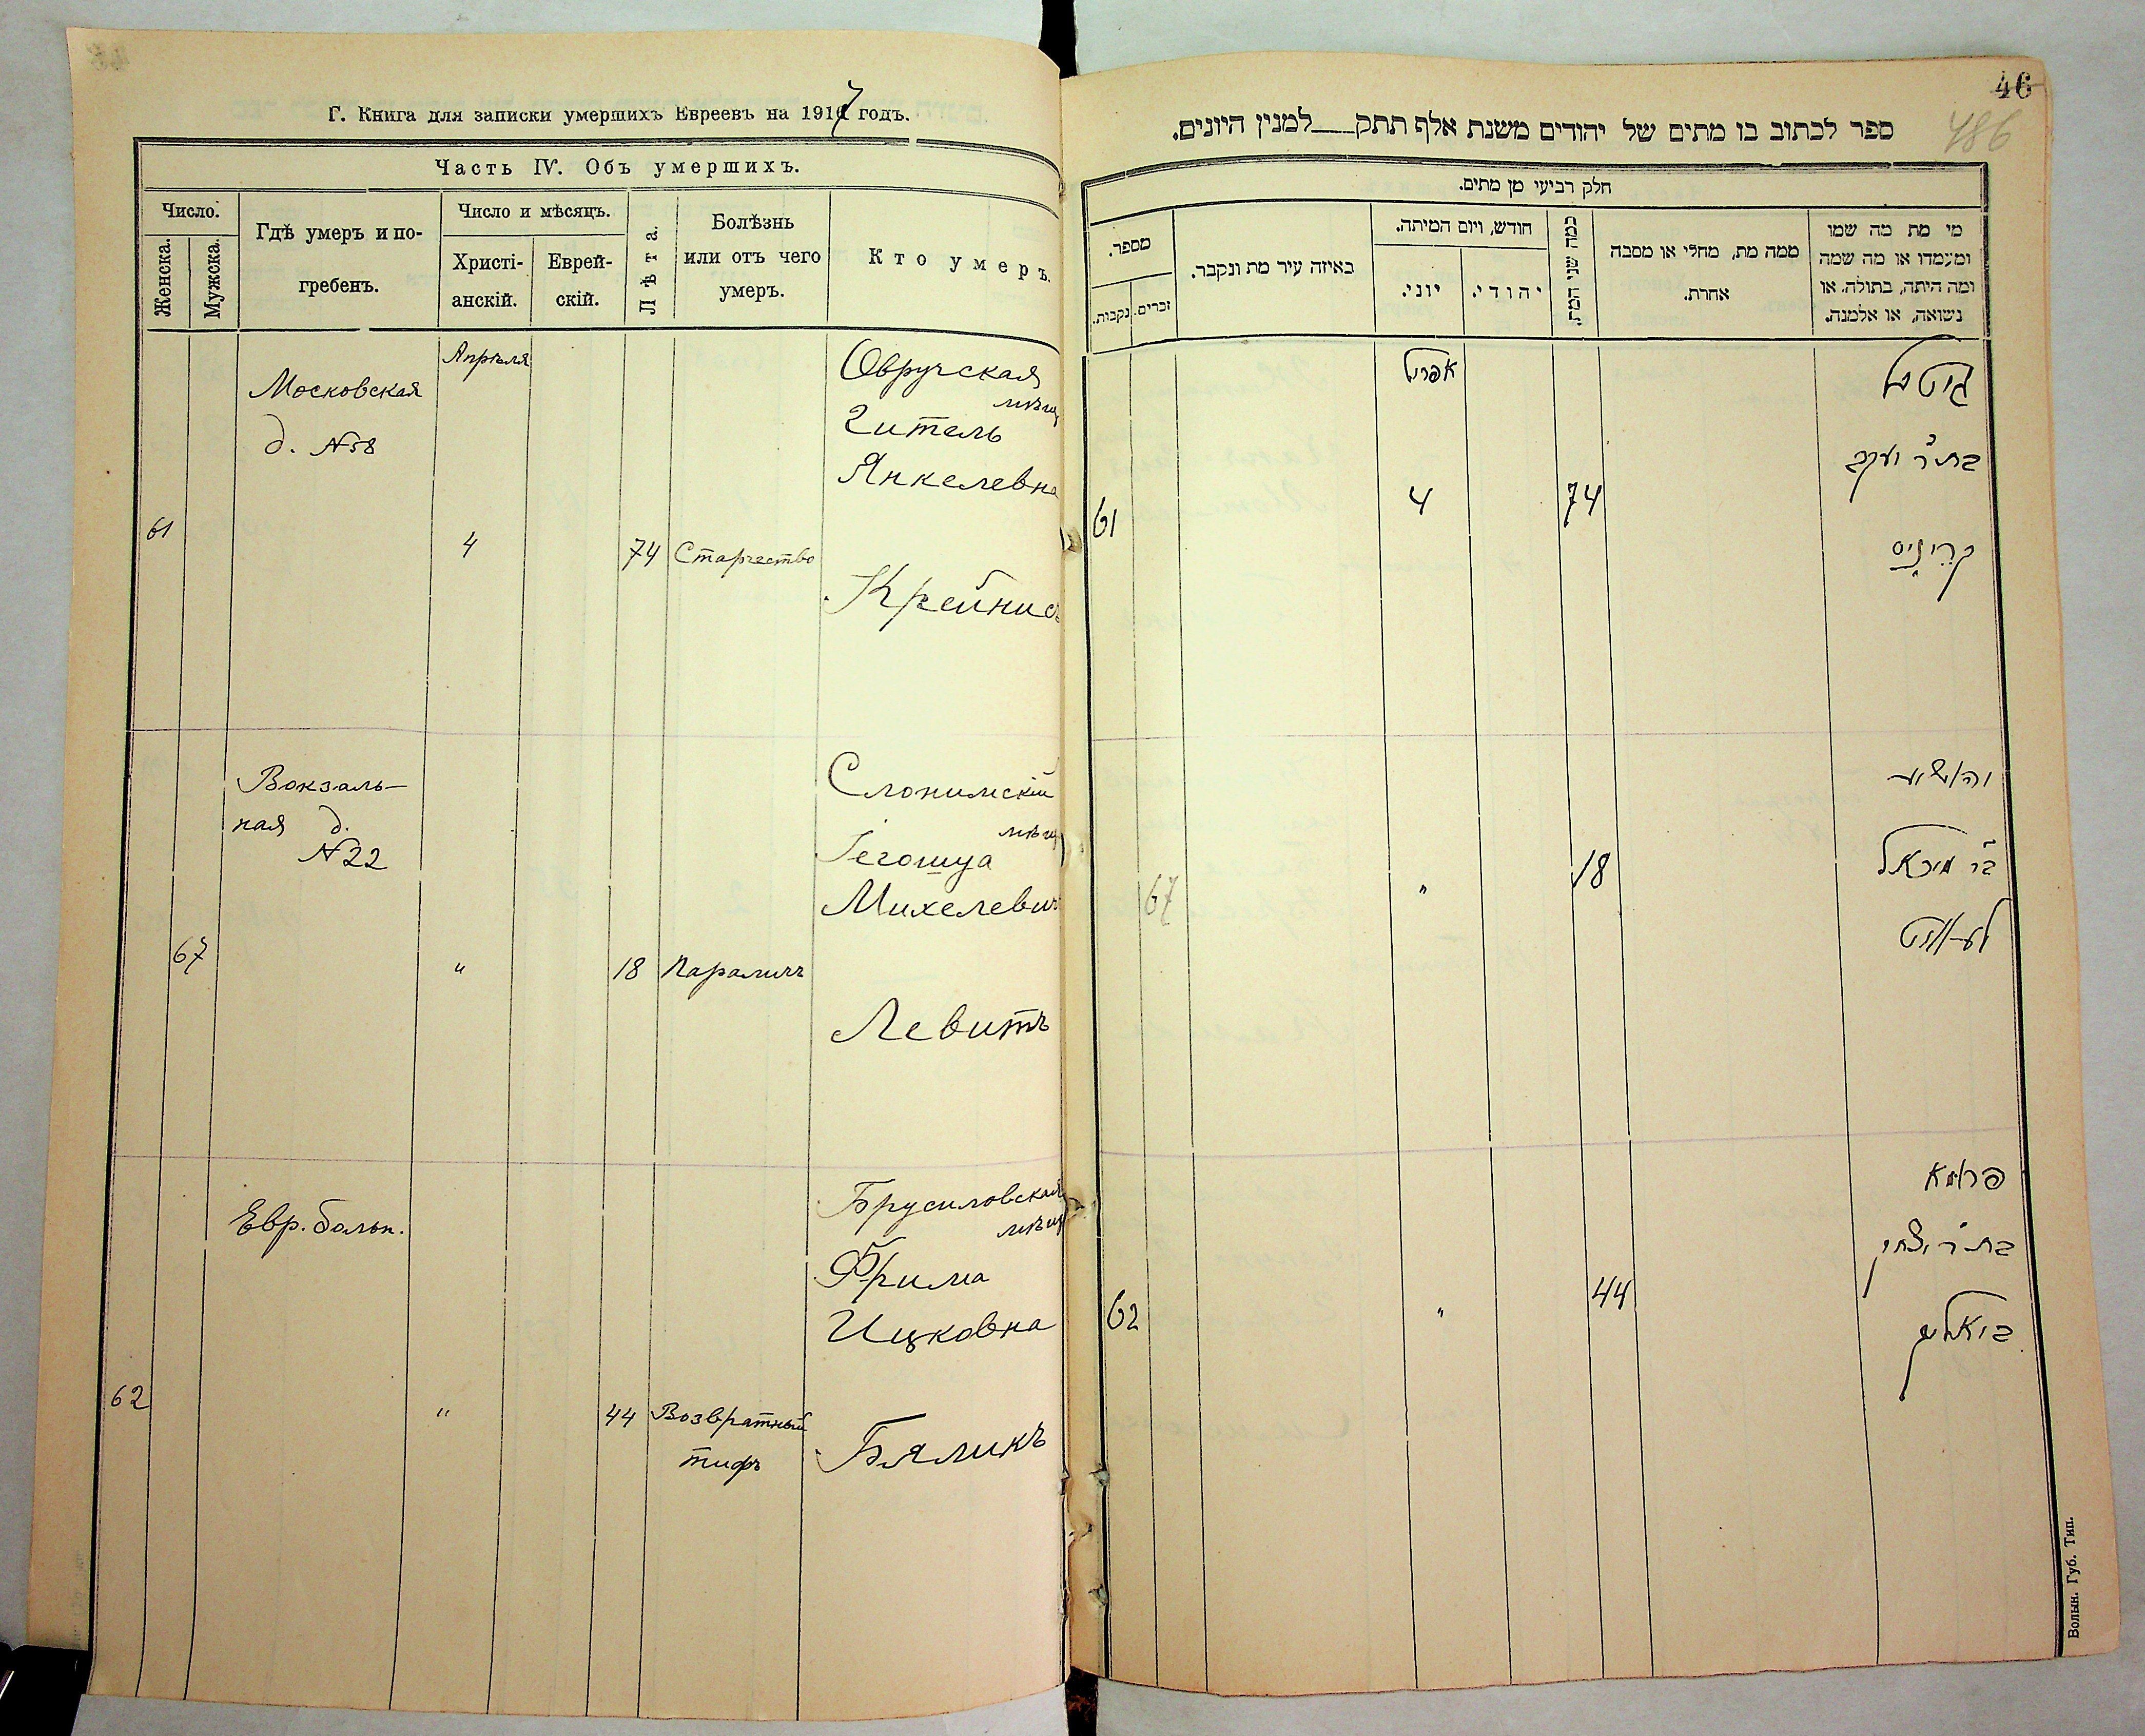 Г. Книга для записки умершихъ Евреевъ на 1917 годъ.
Часть IV. Объ умершихъ.
Число.
Женска.
Мужска.
Гдѣ умеръ и по-
гребенъ.
Число и мѣсяцъ.
Христі-
анскій.
Еврей-
скій.
Лѣта.
Болѣзнь
или отъ чего
умеръ.
Кто умеръ.
Апрѣля
Московская
д. №58
61
4
74
Старчество
Овручская
мѣщ
Гитель
Янкелевна
Крейнисъ
Вокзаль-
ная д.
№22
67
"
18
Параличъ
Слонимскій
мѣщ
Іегошуа
Михелевич
Левитъ
Евр. больн.
62
"
44
Возвратный
тифъ
Брусиловская
мѣщ
Фрима
Ицковна
Бяликъ
46
486
ספר לכתוב בו מתים של יהודים משנת אלף תתק למנין היונים.
חלק רביעי מן מתים.
מספר.
נקבות.
זכרים.
באיזה עיר מת ונקבר.
חודש, ויום המיתה.
יוני.
יהודי.
כמה שני המת.
ממה מת, מחלי או מסבה
אחרת.
מי מת מה שמו
ומעמדו או מה שמה
ומה היתה, בתולה, או
נשואה, או אלמנה.
אפריל
61
4
74
גיטל
בת ר' יעקב
קרייניס
67
"
18
יהושע
בר מיכאל
לעוויט
62
"
44
פרומא
בת ר' יצחק
ביאליק
Волын. Губ. Тип.